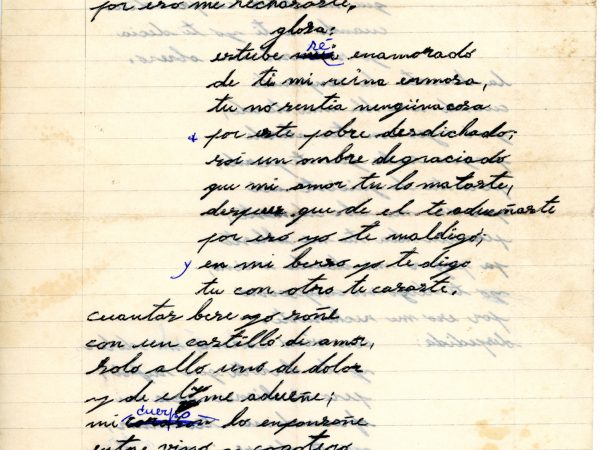 por eso me rechasaste,
glosa:
estube re enamorado
de ti mi reina ermosa,
tu no sentia nengüna cosa
+ por este pobre desdichado;
soi un ombre degraciado
que mi amor tu lo mataste,
despues que de el te adueñaste
por eso yo te maldigo;
y en mi berso yo te digo
tu con otro te casaste.
cuantas bese yo soñe
con un castillo de amor,
solo allo uno de dolor
y de el y me adueñe;
mi cuerpo lo enponsoñe
entre vino